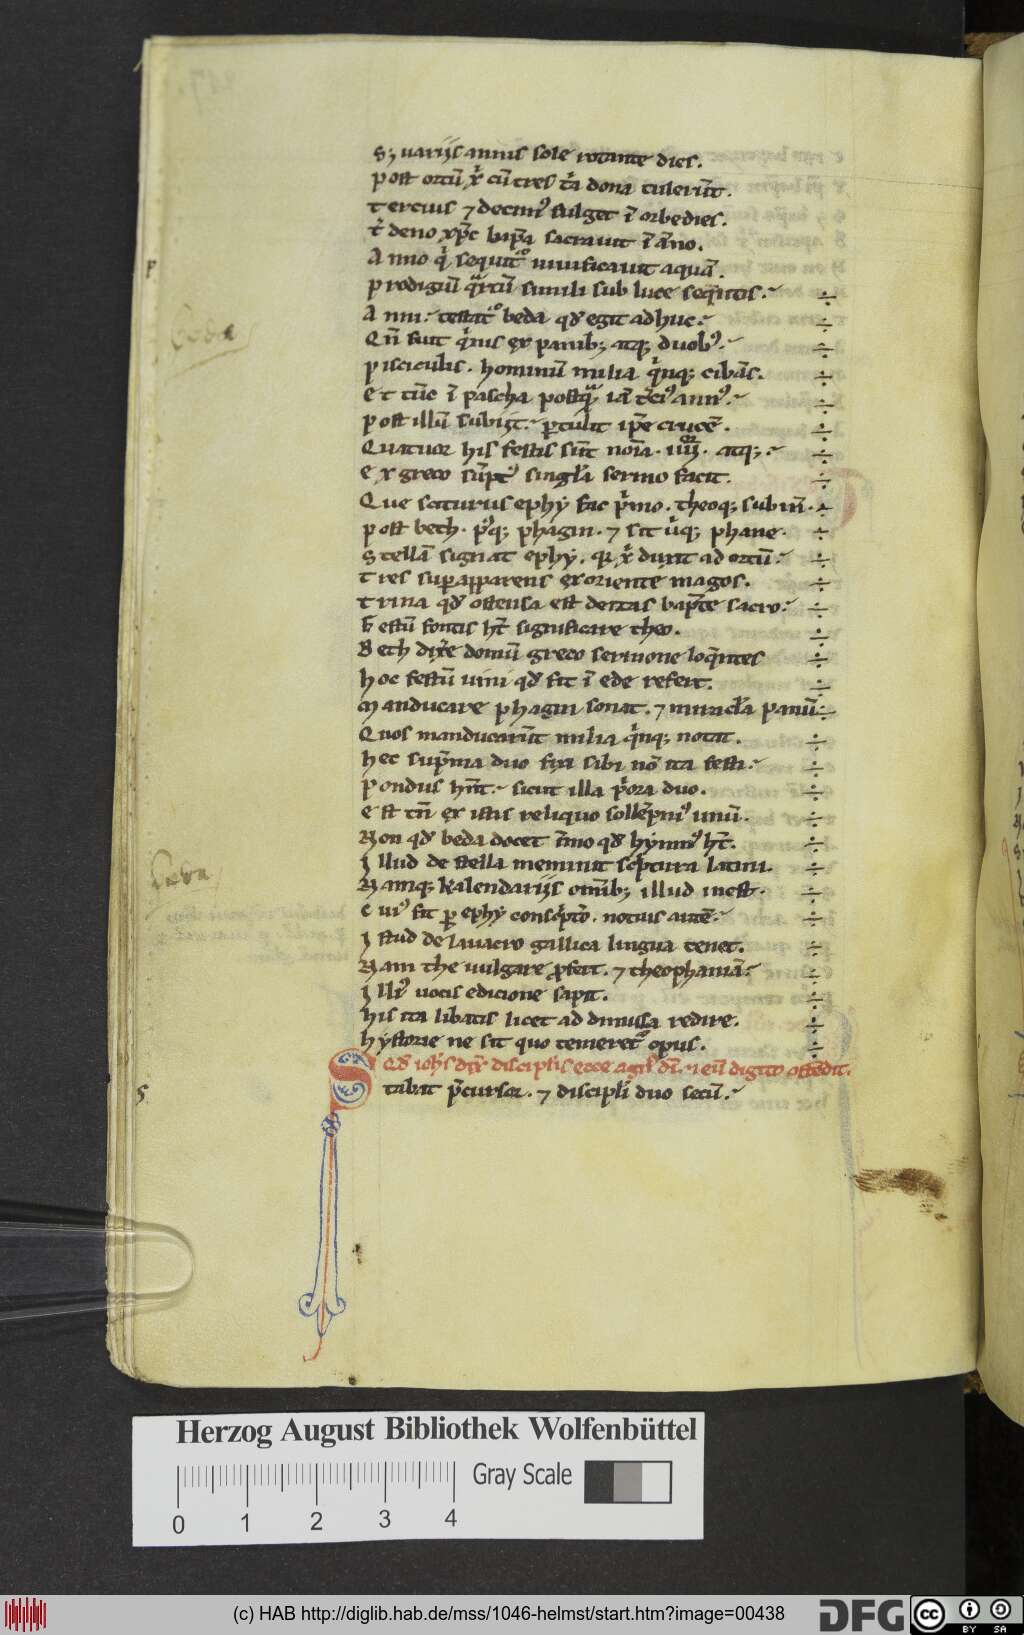 S; uarijs annis sole rotante dies.
Post ortū xp̄i cū tres t̄a dona tulerūt.
Tercius ⁊ decim᷒ fulget ī orbe dies.
T̄ deno xp̄c bap̄ta sacrauit ī āno.
Anno q̄ sequit᷑ uiuificauit aquā.
Prodigiū q̄rtū simili sub luce seq̄ntis.
Anni. testat᷑ beda qđ egit adhuc.
Qn̄ fuit q̄nis ex panib; atq; duob᷒.
Pisciculis. hominū milia q̄nq; cibās.
Et tūc ī pascha postq̄ iā t̄ci᷒ ann᷒.
Post illū subijt. ptulit ip̄e crucē.
Quatuor his festis sūt noīa. iiii. atq;.
Ex greco sūpt᷒ singl̄a sermo facit.
Que sciturus ephy fac p̄mo. theoq; subin̄.
Post beth. p᷒q; phagin. ⁊ sit ūq; phane.
Stellā signat ephy. qr xp̄i duxit ad ortū.
Tres supapparens ex oriente magos.
Trina qđ ostensa est deitas bap̄te sacro.
F̄estū fontis hc̄ significare theo.
Beth dix̄e domū greco sermone loq̄ntes
Hoc festū uini qđ fit ī ede refert.
Manducare phagin sonat. ⁊ miracl̄a panū.
Quos manducarūt milia q̄nq; notat.
Hec sup̄ma duo fixi sibi nō ita festi.
Pondus hn̄t. sicut illa p̄ora duo.
Est tn̄ ex istis reliquo sollēpni᷒ unū.
Non qđ beda docet īmo qđ hymn᷒ hc̄.
Illud de stella meminit sc̄ptura latini.
Namq; kalendarijs omīb; illud inest.
Cui᷒ fit p ephy consc̄pto. notus autē.
Istud de lauacro gallica lingua tenet.
Nam the uulgare p̄fert. ⁊ theophaniā.
Illi᷒ uocis edicione sapit.
His ita libatis licet ad dimissa redire.
Hystorie ne sit quo temeret᷑ opus.
Qđ ioh̄s dix̄ discipl̄is ecce agn᷒ dī. ⁊ eū digito ostēdit.
Stabat p̄cursor. ⁊ discipl̄i duo secū.
P
S
Herzog August Bibliothek Wolfenbüttel
Gray Scale
0 1 2 3 4
(c) HAB http://diglib.hab.de/mss/1046-helmst/start.htm?image=00438
DFG
cc BY SA